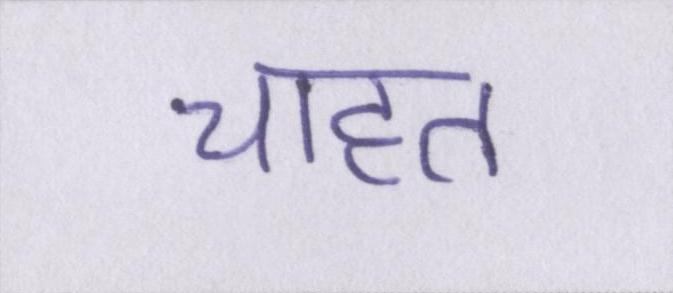 चाहत